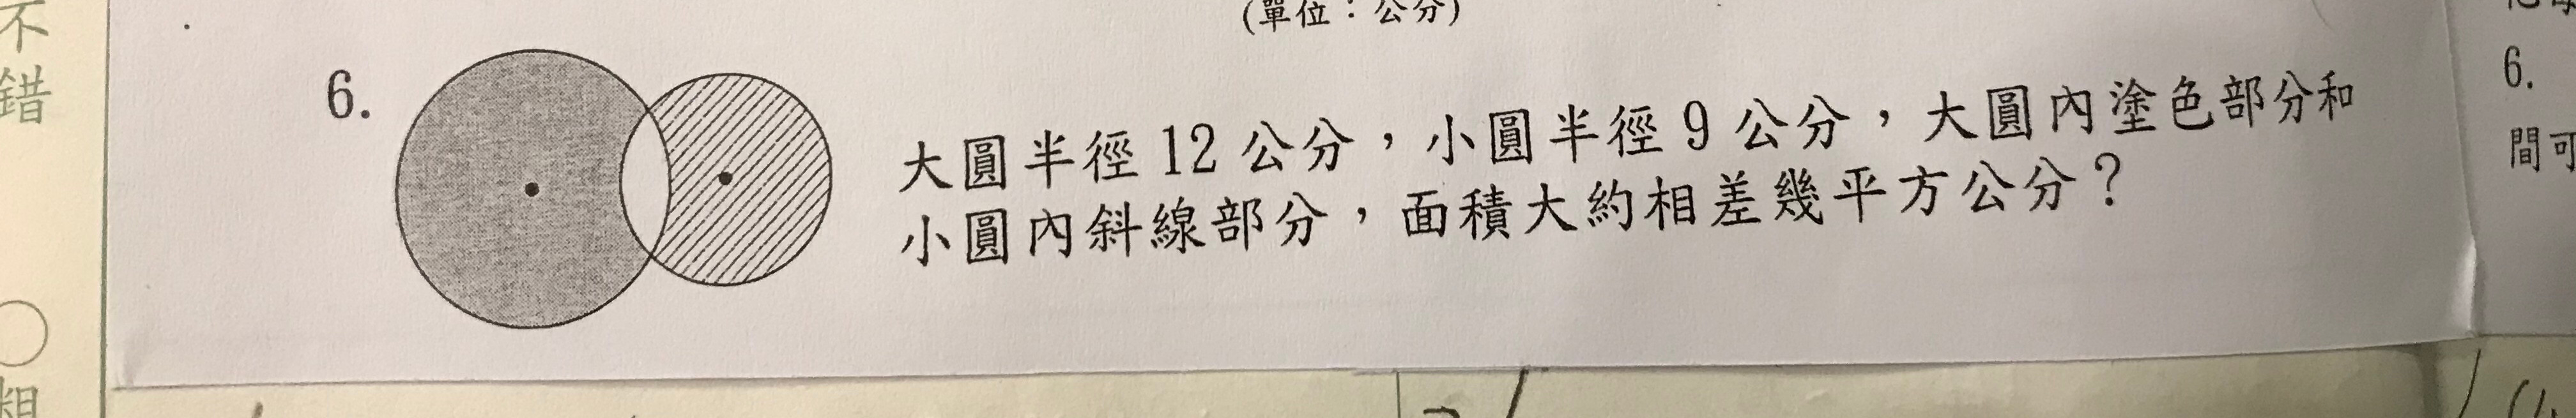 不
錯
(單位：公分)
6.
大圓半徑12公分，小圓半徑9公分，大圓內塗色部分和
小圓內斜線部分，面積大約相差幾平方公分？
6.
間可